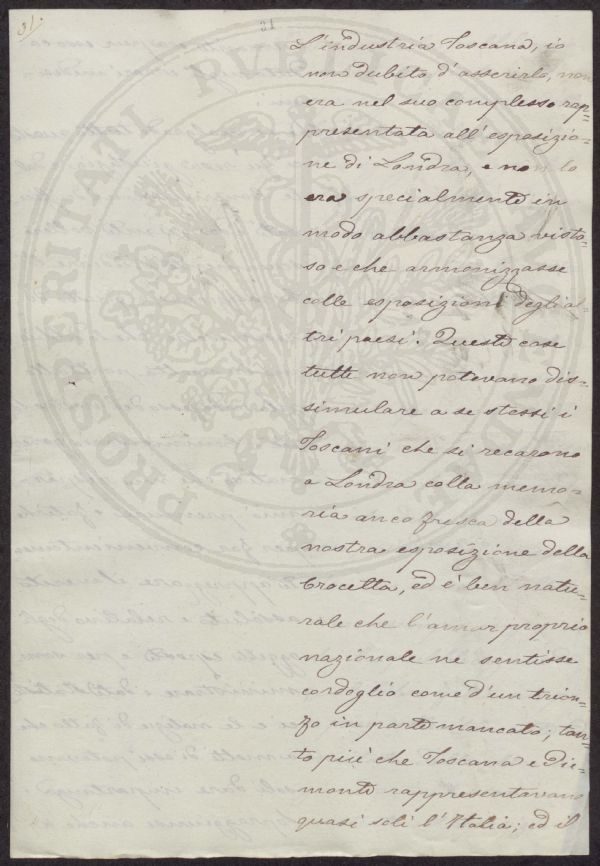 31.
31
L'industria Toscana, io
non dubito d'asserirlo, non
era nel suo complesso rap-
presentata all'esposizio-
ne di Londra, e non lo
era specialmente in
modo abbastanza visto-
so e che armonizzasse
colle esposizioni degli al-
tri paesi. Queste cose
tutte non potevano dis-
simulare a se stessi i
Toscani che si recarono
a Londra colla memo-
ria anco fresca della
nostra esposizione della
Crocetta, ed è ben natu-
rale che l'amor proprio
nazionale ne sentisse
cordoglio come d'un trion-
fo in parte mancato; tan-
to più che Toscana e Pie-
monte rappresentavano
quasi soli l'Italia; ed il
PROSPERITATI PUBLICAE AUGENDAE